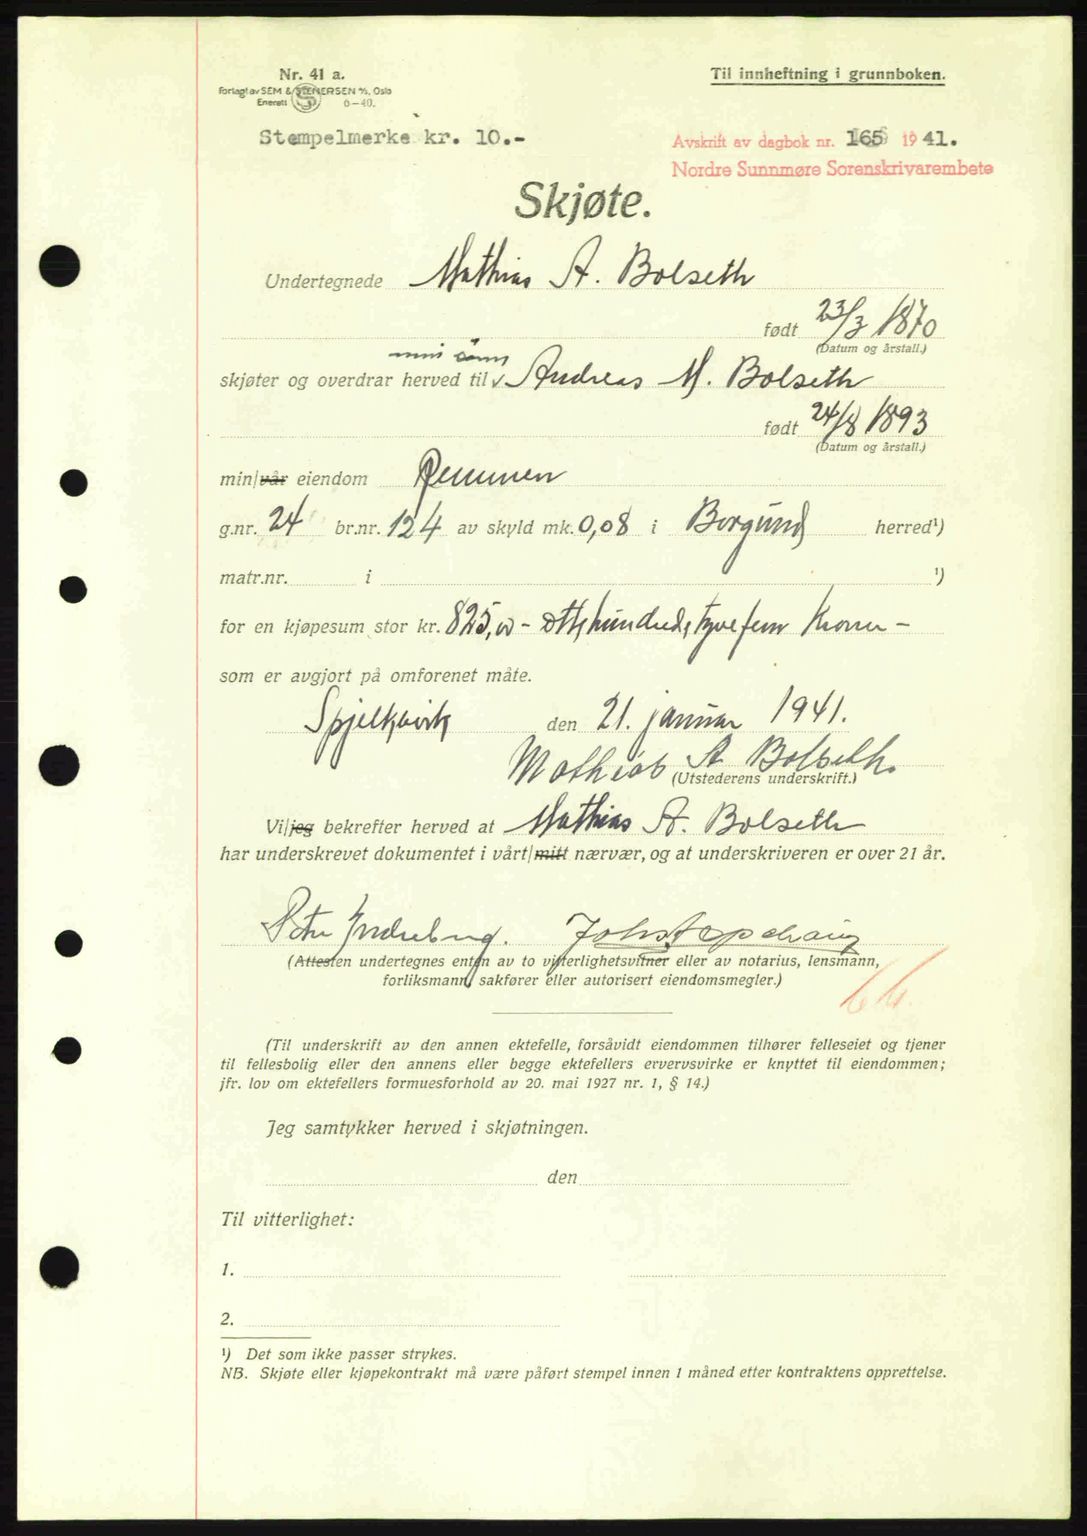 Nr. 41 a.
Til innheftning i grunnboken.
Forlagt av SEM & STENERSEN A/S, Oslo
Enerett 6-40.
Stempelmerke kr. 10.-
Avskrift av dagbok nr. 165 1941.
Nordre Sunnmøre Sorenskrivarembete
Skjøte.
Undertegnede Mathias A. Bolseth
født 23/3 1870
(Datum og årstall.)
min sønn
skjøter og overdrar herved til v Andreas M. Bolseth
født 24/8 1893
(Datum og årstall.)
min/vår eiendom Remmen
g.nr. 24 br.nr. 124 av skyld mk. 0,08 i Borgund herred¹)
matr.nr. i ¹)
for en kjøpesum stor kr. 825,00 - ottehundredetyvefem Kroner -
som er avgjort på omforenet måte.
Spjelkavik den 21. januar 1941.
Mathias A Bolseth
(Utstederens underskrift.)
Vi/jeg bekrefter herved at Mathias A. Bolseth
har underskrevet dokumentet i vårt/mitt nærvær, og at underskriveren er over 21 år.
(Attesten undertegnes enten av to vitterlighetsvitner eller av notarius, lensmann,
forliksmann, sakfører eller autorisert eiendomsmegler.)
(Til underskrift av den annen ektefelle, forsåvidt eiendommen tilhører felleseiet og tjener
til fellesbolig eller den annens eller begge ektefellers ervervsvirke er knyttet til eiendommen;
jfr. lov om ektefellers formuesforhold av 20. mai 1927 nr. 1, § 14.)
Jeg samtykker herved i skjøtningen.
den
Til vitterlighet:
1.
2.
¹) Det som ikke passer strykes.
NB. Skjøte eller kjøpekontrakt må være påført stempel innen 1 måned etter kontraktens opprettelse.